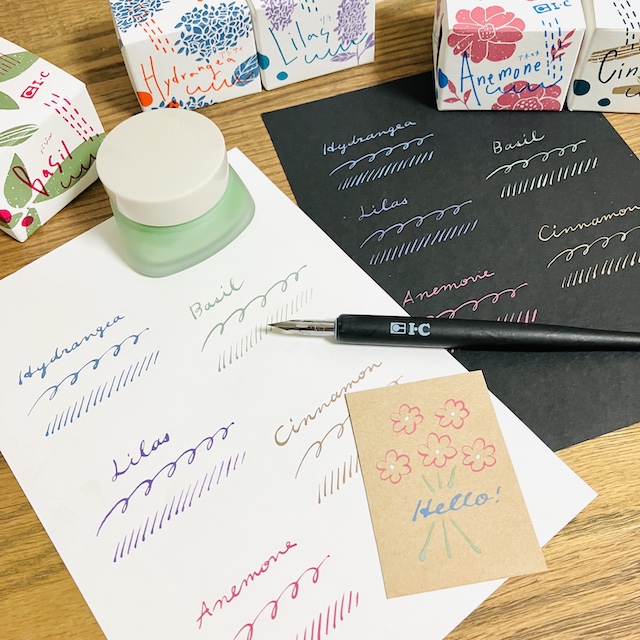 I·C
Basil
Hydrangea
Lilas
I·C
Anemone
Hydrangea
Basil
Lilas
Cinnamon
Anemone
I·C
Hydrangea
Basil
Lilas
Cinnamon
Anemone
Hello!